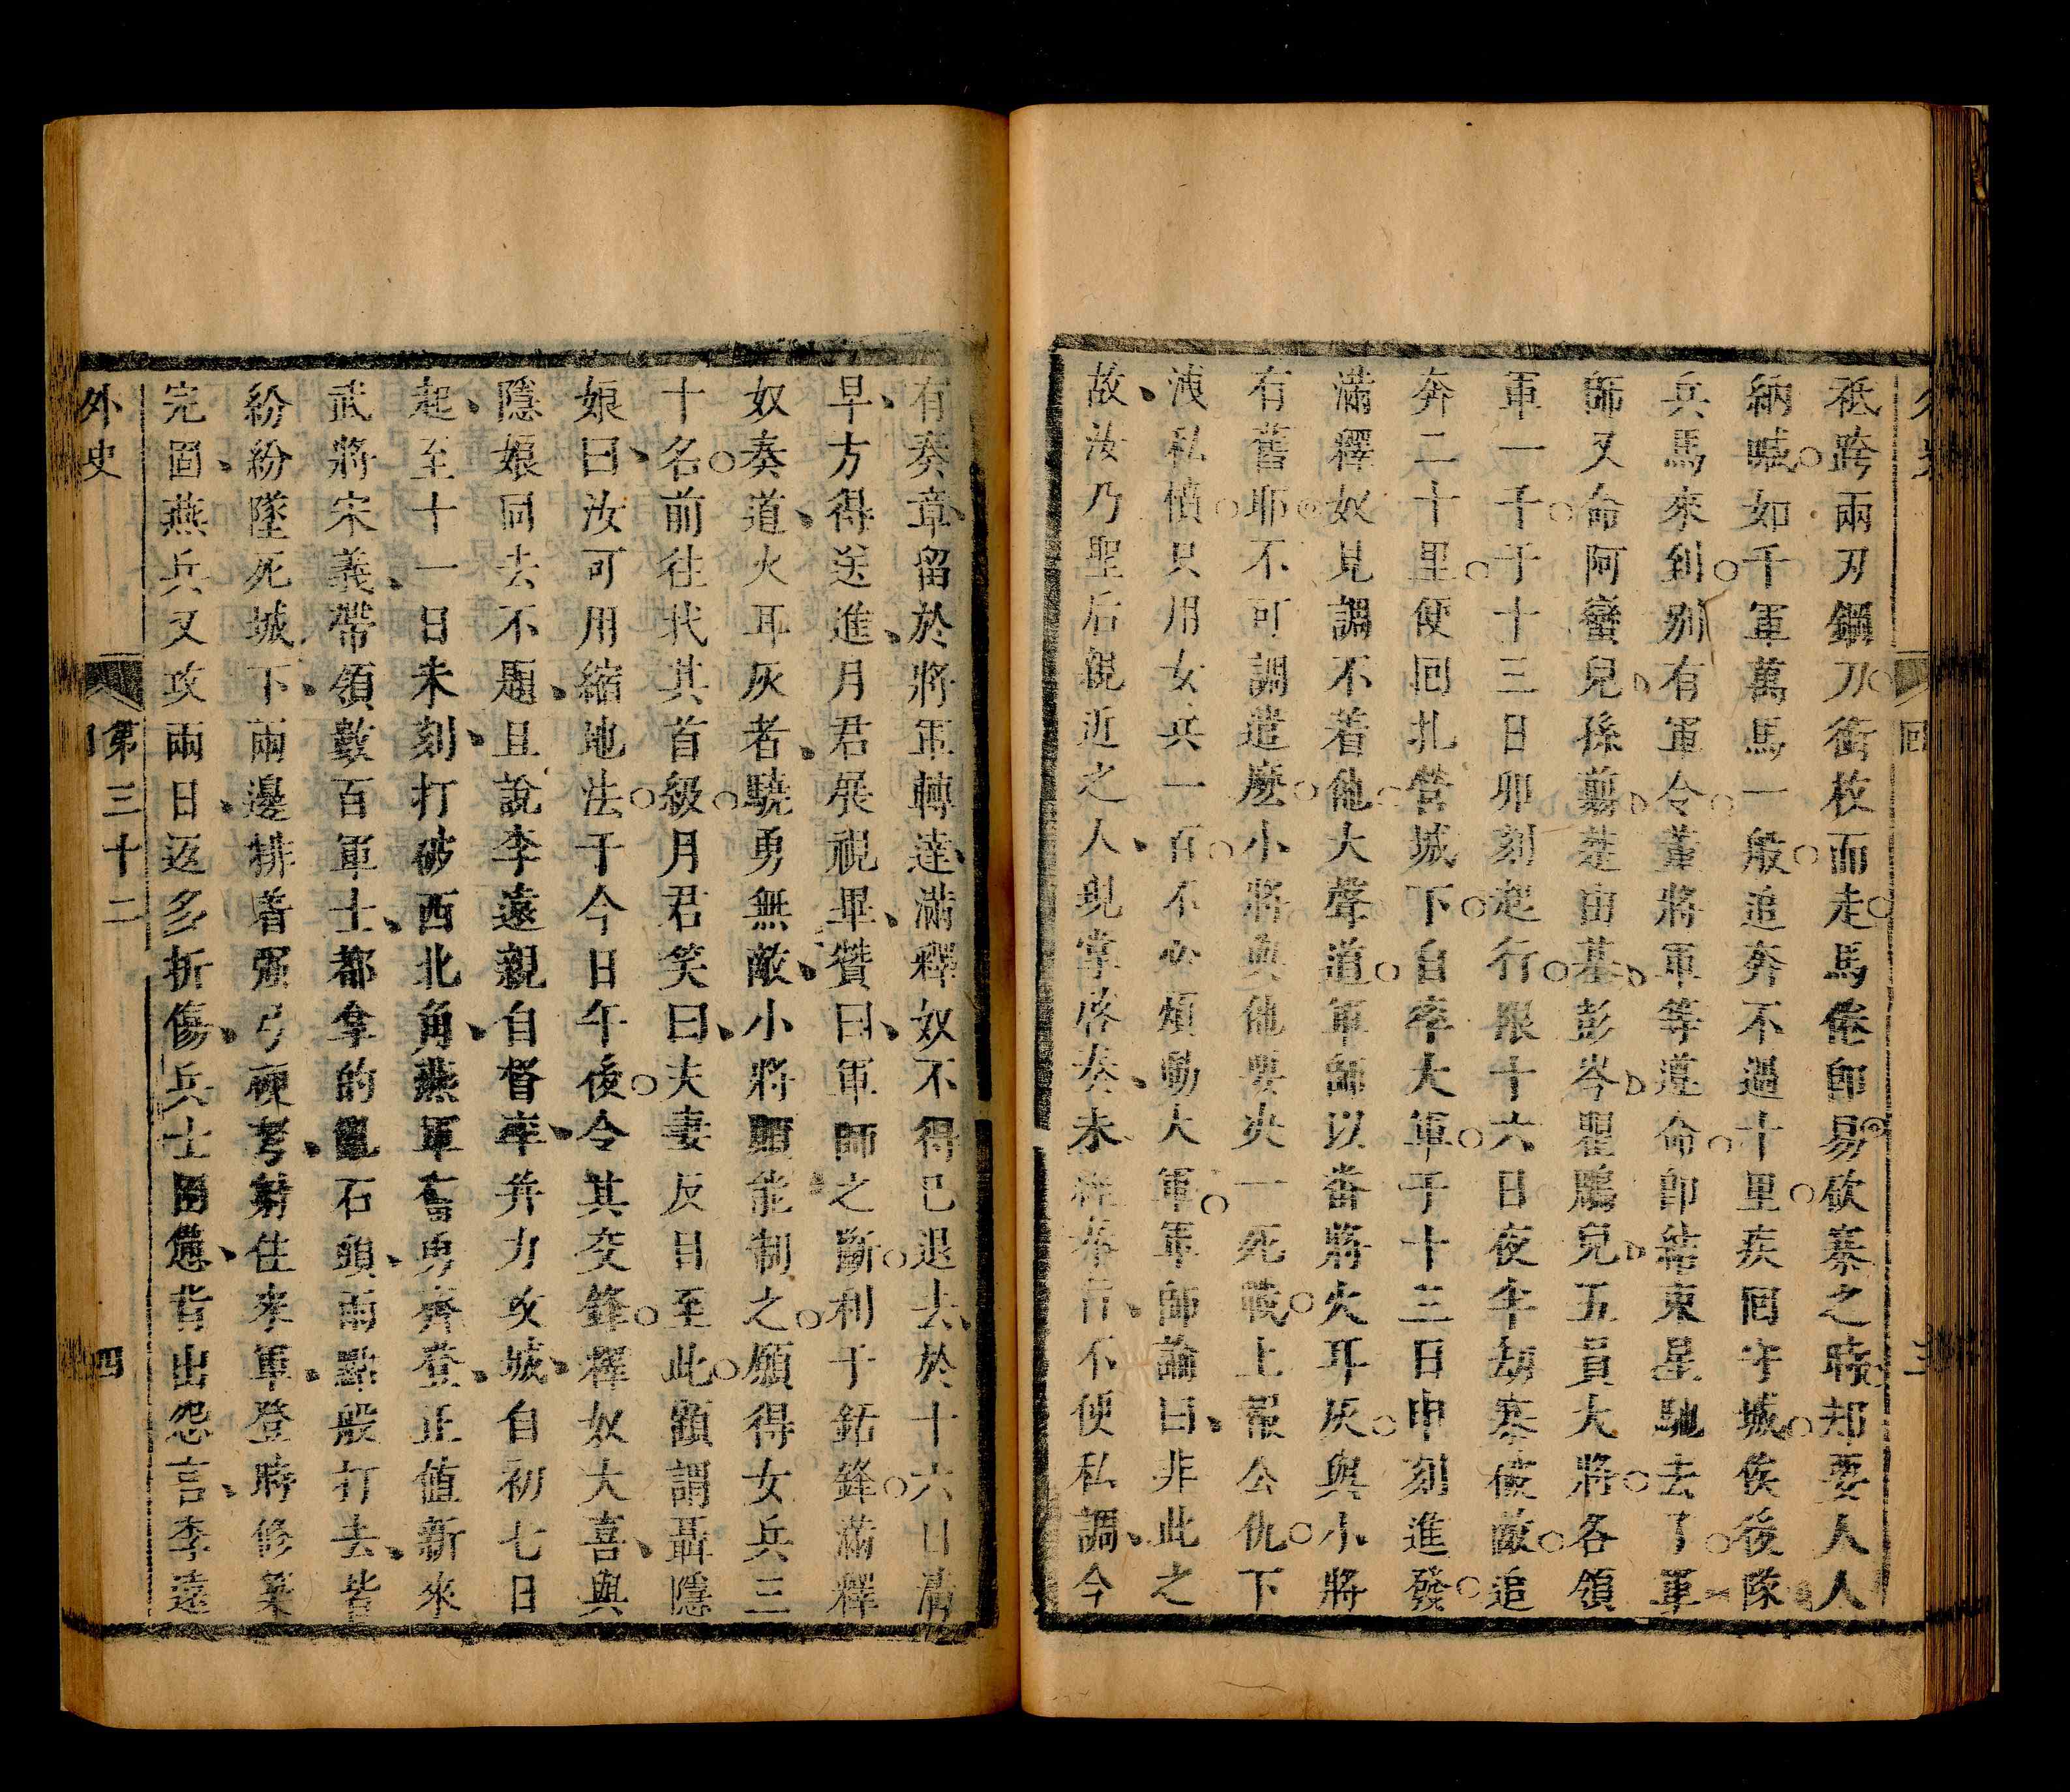 祗跨兩刃鋼刀銜枚而走馬倦卽易砍寨之時却要人人
納喊如千軍萬馬一般追奔不過十里疾回守城俟後隊
兵馬來到別有軍令董將軍等遵命卽結束星馳去了軍
師又命阿蠻兒孫翦楚由基彭岑瞿鵰兒五員大將各領
軍一千于十三日卯刻起行限十六日夜半劫寨彼敵追
奔二十里便回扎營城下自率大軍于十三日申刻進發
滿釋奴見調不着他大聲道軍師以番將火耳灰與小將
有舊耶不可調遣麽小將與他要决一死戰上報公仇下
洩私憤只用女兵一百不必煩動大軍軍師諭曰非此之
故汝乃聖后親近之人現掌啓奏未經奉旨不便私調今
有奏章留於將軍轉達滿釋奴不得已退去於十六日淸
早方得送進月君展視畢贊曰軍師之斷利于銛鋒滿釋
奴奏道火耳灰者驍勇無敵小將願能制之願得女兵三
十名前往找其首級月君笑曰夫妻反目至此顧謂聶隱
娘曰汝可用縮地法于今日午後令其交鋒釋奴大喜與
隱娘同去不題且說李遠親自督率并力攻城自初七日
起至十一日未刻打破西北角燕軍奮勇齊登正值新來
武將宋義帶領數百軍士都拿的亂石頭雨點般打去皆
紛紛墜死城下兩邊排着强弓硬弩射住來軍登時修築
完固燕兵又攻兩日返多折傷兵士困憊背出怨言李遠
外史
第三十二回
四